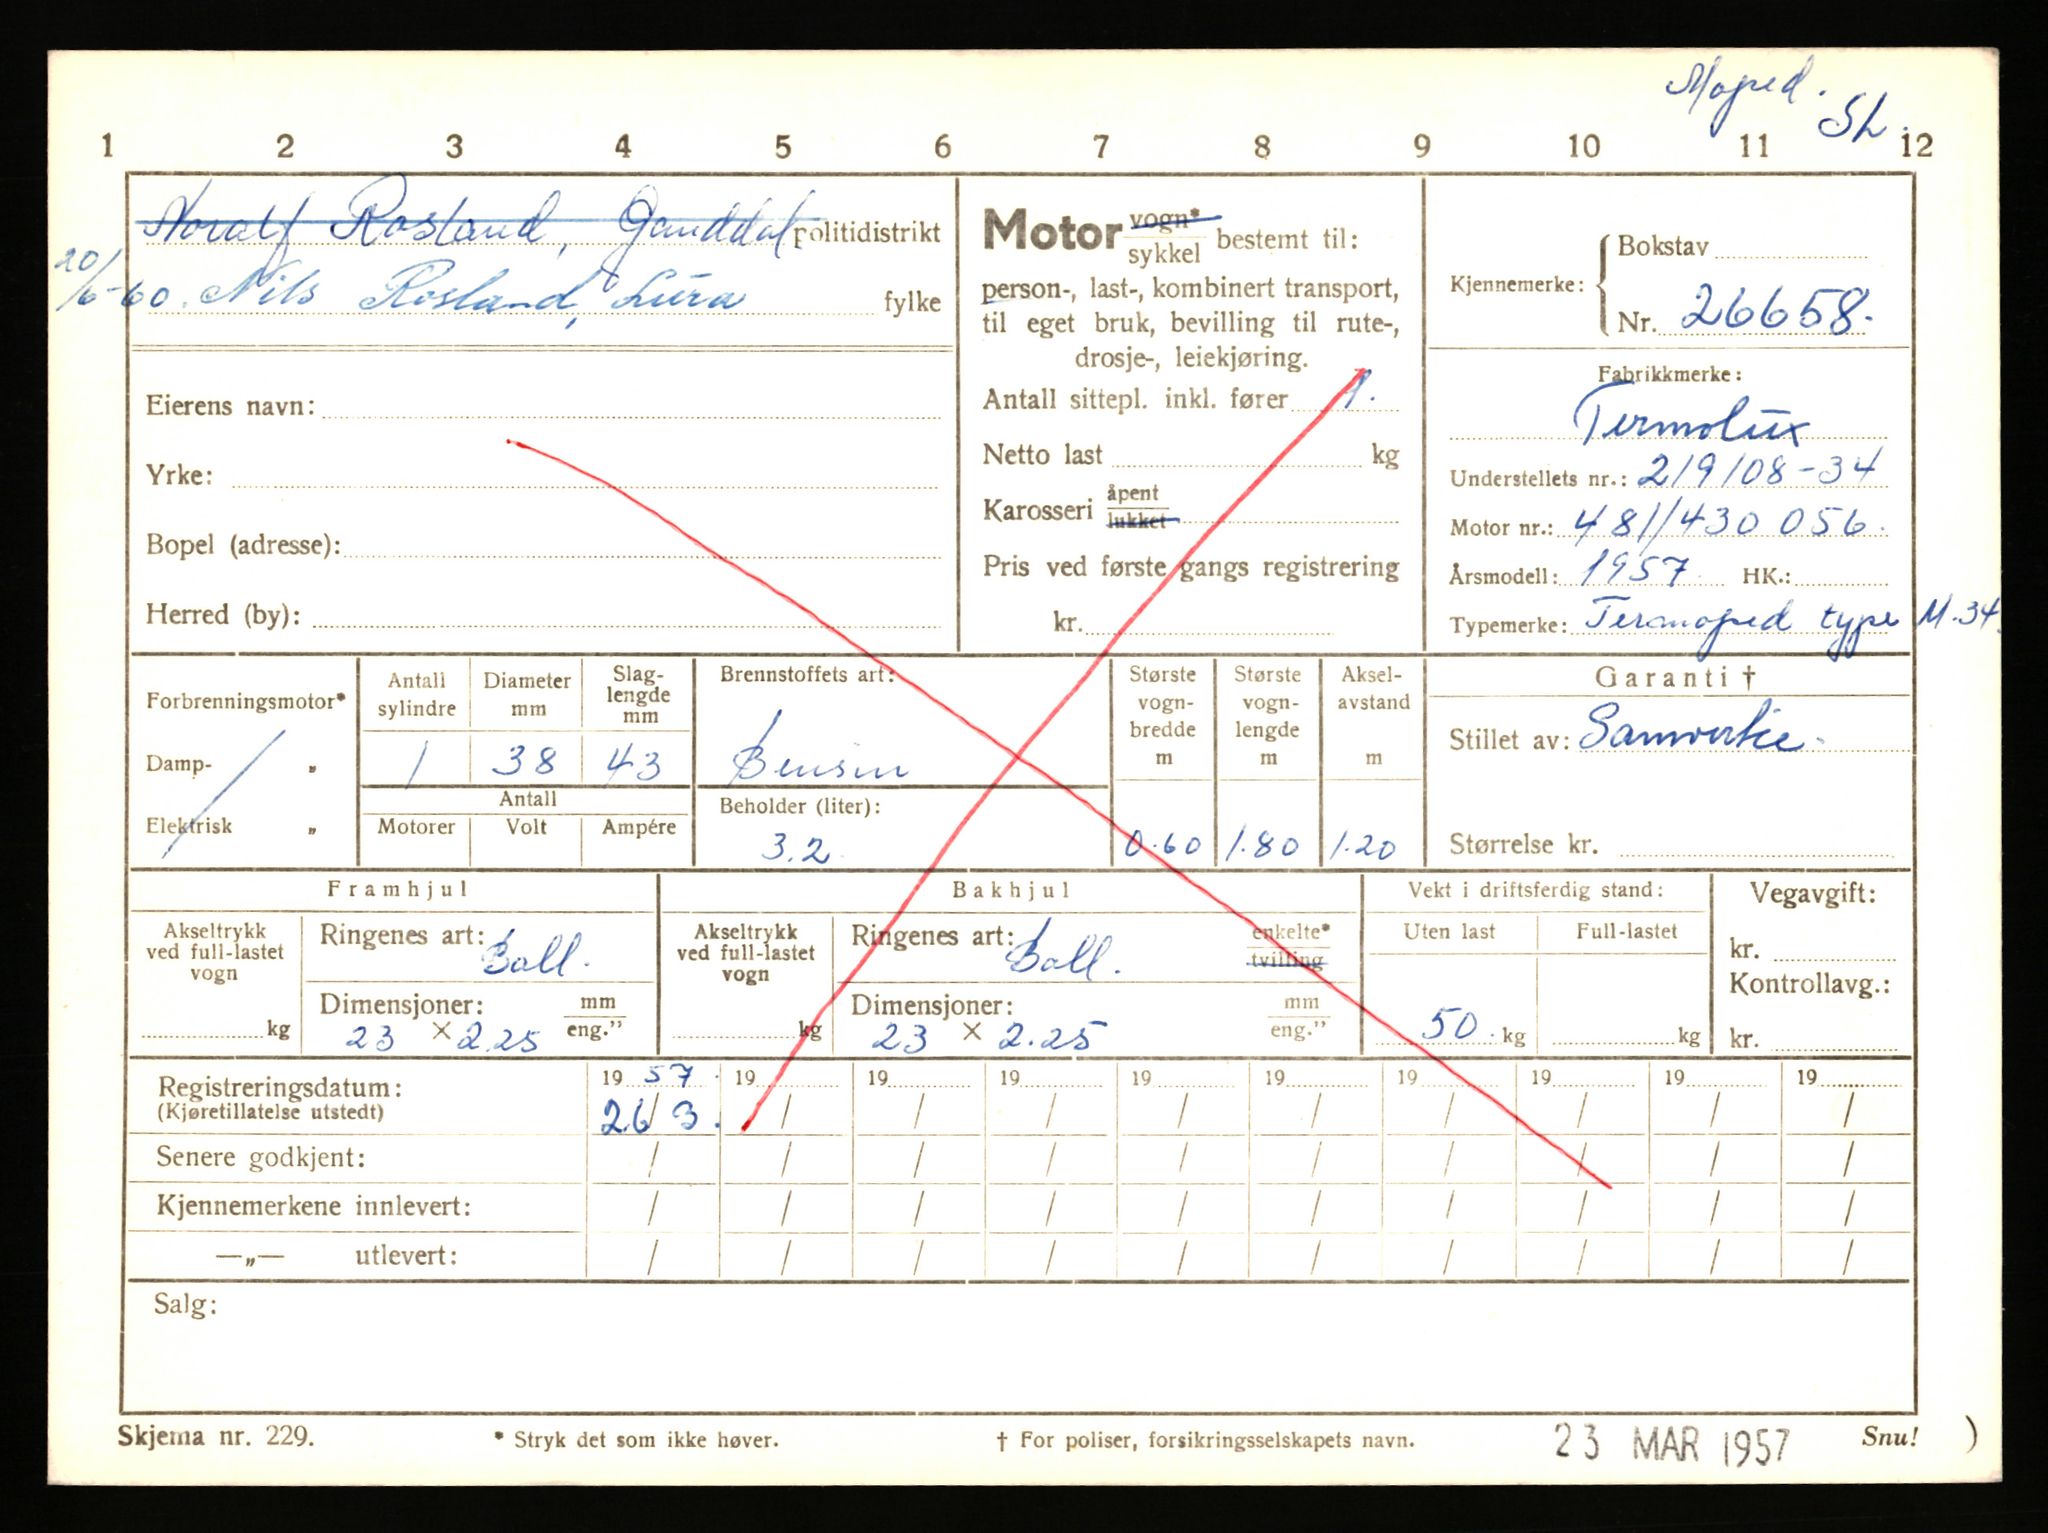 Moped.
SL.
1 2 3 4 5 6 7 8 9 10 11 12
Noralf Rosland, Ganddal politidistrikt
20/6-60. Nils Rosland, Lura fylke
Eierens navn:
Yrke:
Bopel (adresse):
Herred (by):
Motor vogn* sykkel bestemt til:
person-, last-, kombinert transport,
til eget bruk, bevilling til rute-,
drosje-, leiekjøring.
Antall sittepl. inkl. fører 1.
Netto last kg
Karosseri åpent lukket
Pris ved første gangs registrering
kr.
Kjennemerke: Bokstav
Nr. 26658.
Fabrikkmerke:
Termolux
Understellets nr.: 219108-34
Motor nr.: 481/430 056.
Årsmodell: 1957. HK.:
Typemerke: Termoped type M.34.
Forbrenningsmotor*
Damp- „
Elektrisk „
Antall sylindre
1
Diameter mm
38
Slag-lengde mm
43
Antall
Motorer Volt Ampére
Brennstoffets art:
Bensin
Beholder (liter):
3.2
Største vogn-bredde m
0.60
Største vogn-lengde m
1.80
Aksel-avstand m
1.20
Garanti †
Stillet av: Samvirke.
Størrelse kr.
Framhjul
Akseltrykk
ved full-lastet
vogn
kg
Ringenes art:
Ball.
Dimensjoner: mm
23 × 2.25 eng."
Bakhjul
Akseltrykk
ved full-lastet
vogn
kg
Ringenes art: enkelte*
Ball. tvilling
Dimensjoner: mm
23 × 2.25 eng."
Vekt i driftsferdig stand:
Uten last Full-lastet
50. kg kg
Vegavgift:
kr.
Kontrollavg.:
kr.
Registreringsdatum: 19 57. 19 19 19 19 19 19 19 19 19
(Kjøretillatelse utstedt) 26/3. / / / / / / / / /
Senere godkjent: / / / / / / / / / /
Kjennemerkene innlevert: / / / / / / / / / /
—„— utlevert: / / / / / / / / / /
Salg:
Skjema nr. 229. * Stryk det som ikke høver. † For poliser, forsikringsselskapets navn. 23 MAR 1957 Snu! )